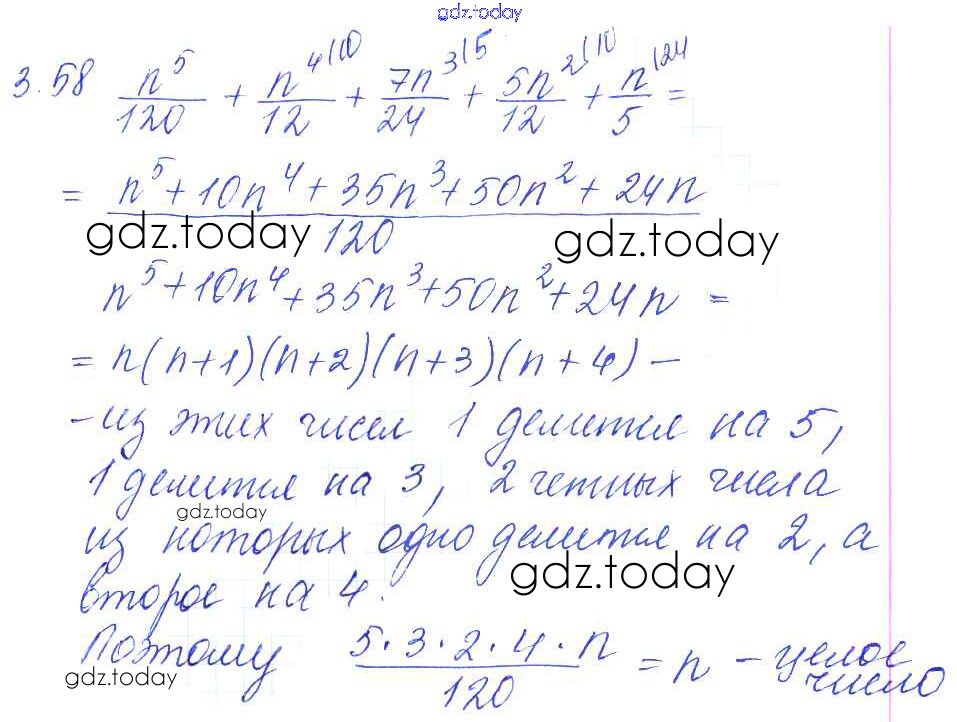 gdz.today
3.58 n^5/120 + n^4/12^(10 + 7n^3/24^(5 + 5n^2/12^(10 + n/5^(24 =
= (n^5 + 10n^4 + 35n^3 + 50n^2 + 24n)/120
gdz.today gdz.today
n^5 + 10n^4 + 35n^3 + 50n^2 + 24n =
= n(n+1)(n+2)(n+3)(n+4) –
- из этих чисел 1 делится на 5,
1 делится на 3, 2 четных числа
gdz.today
из которых одно делится на 2, а
gdz.today
второе на 4.
Поэтому (5·3·2·4·n)/120 = n – целое
число
gdz.today